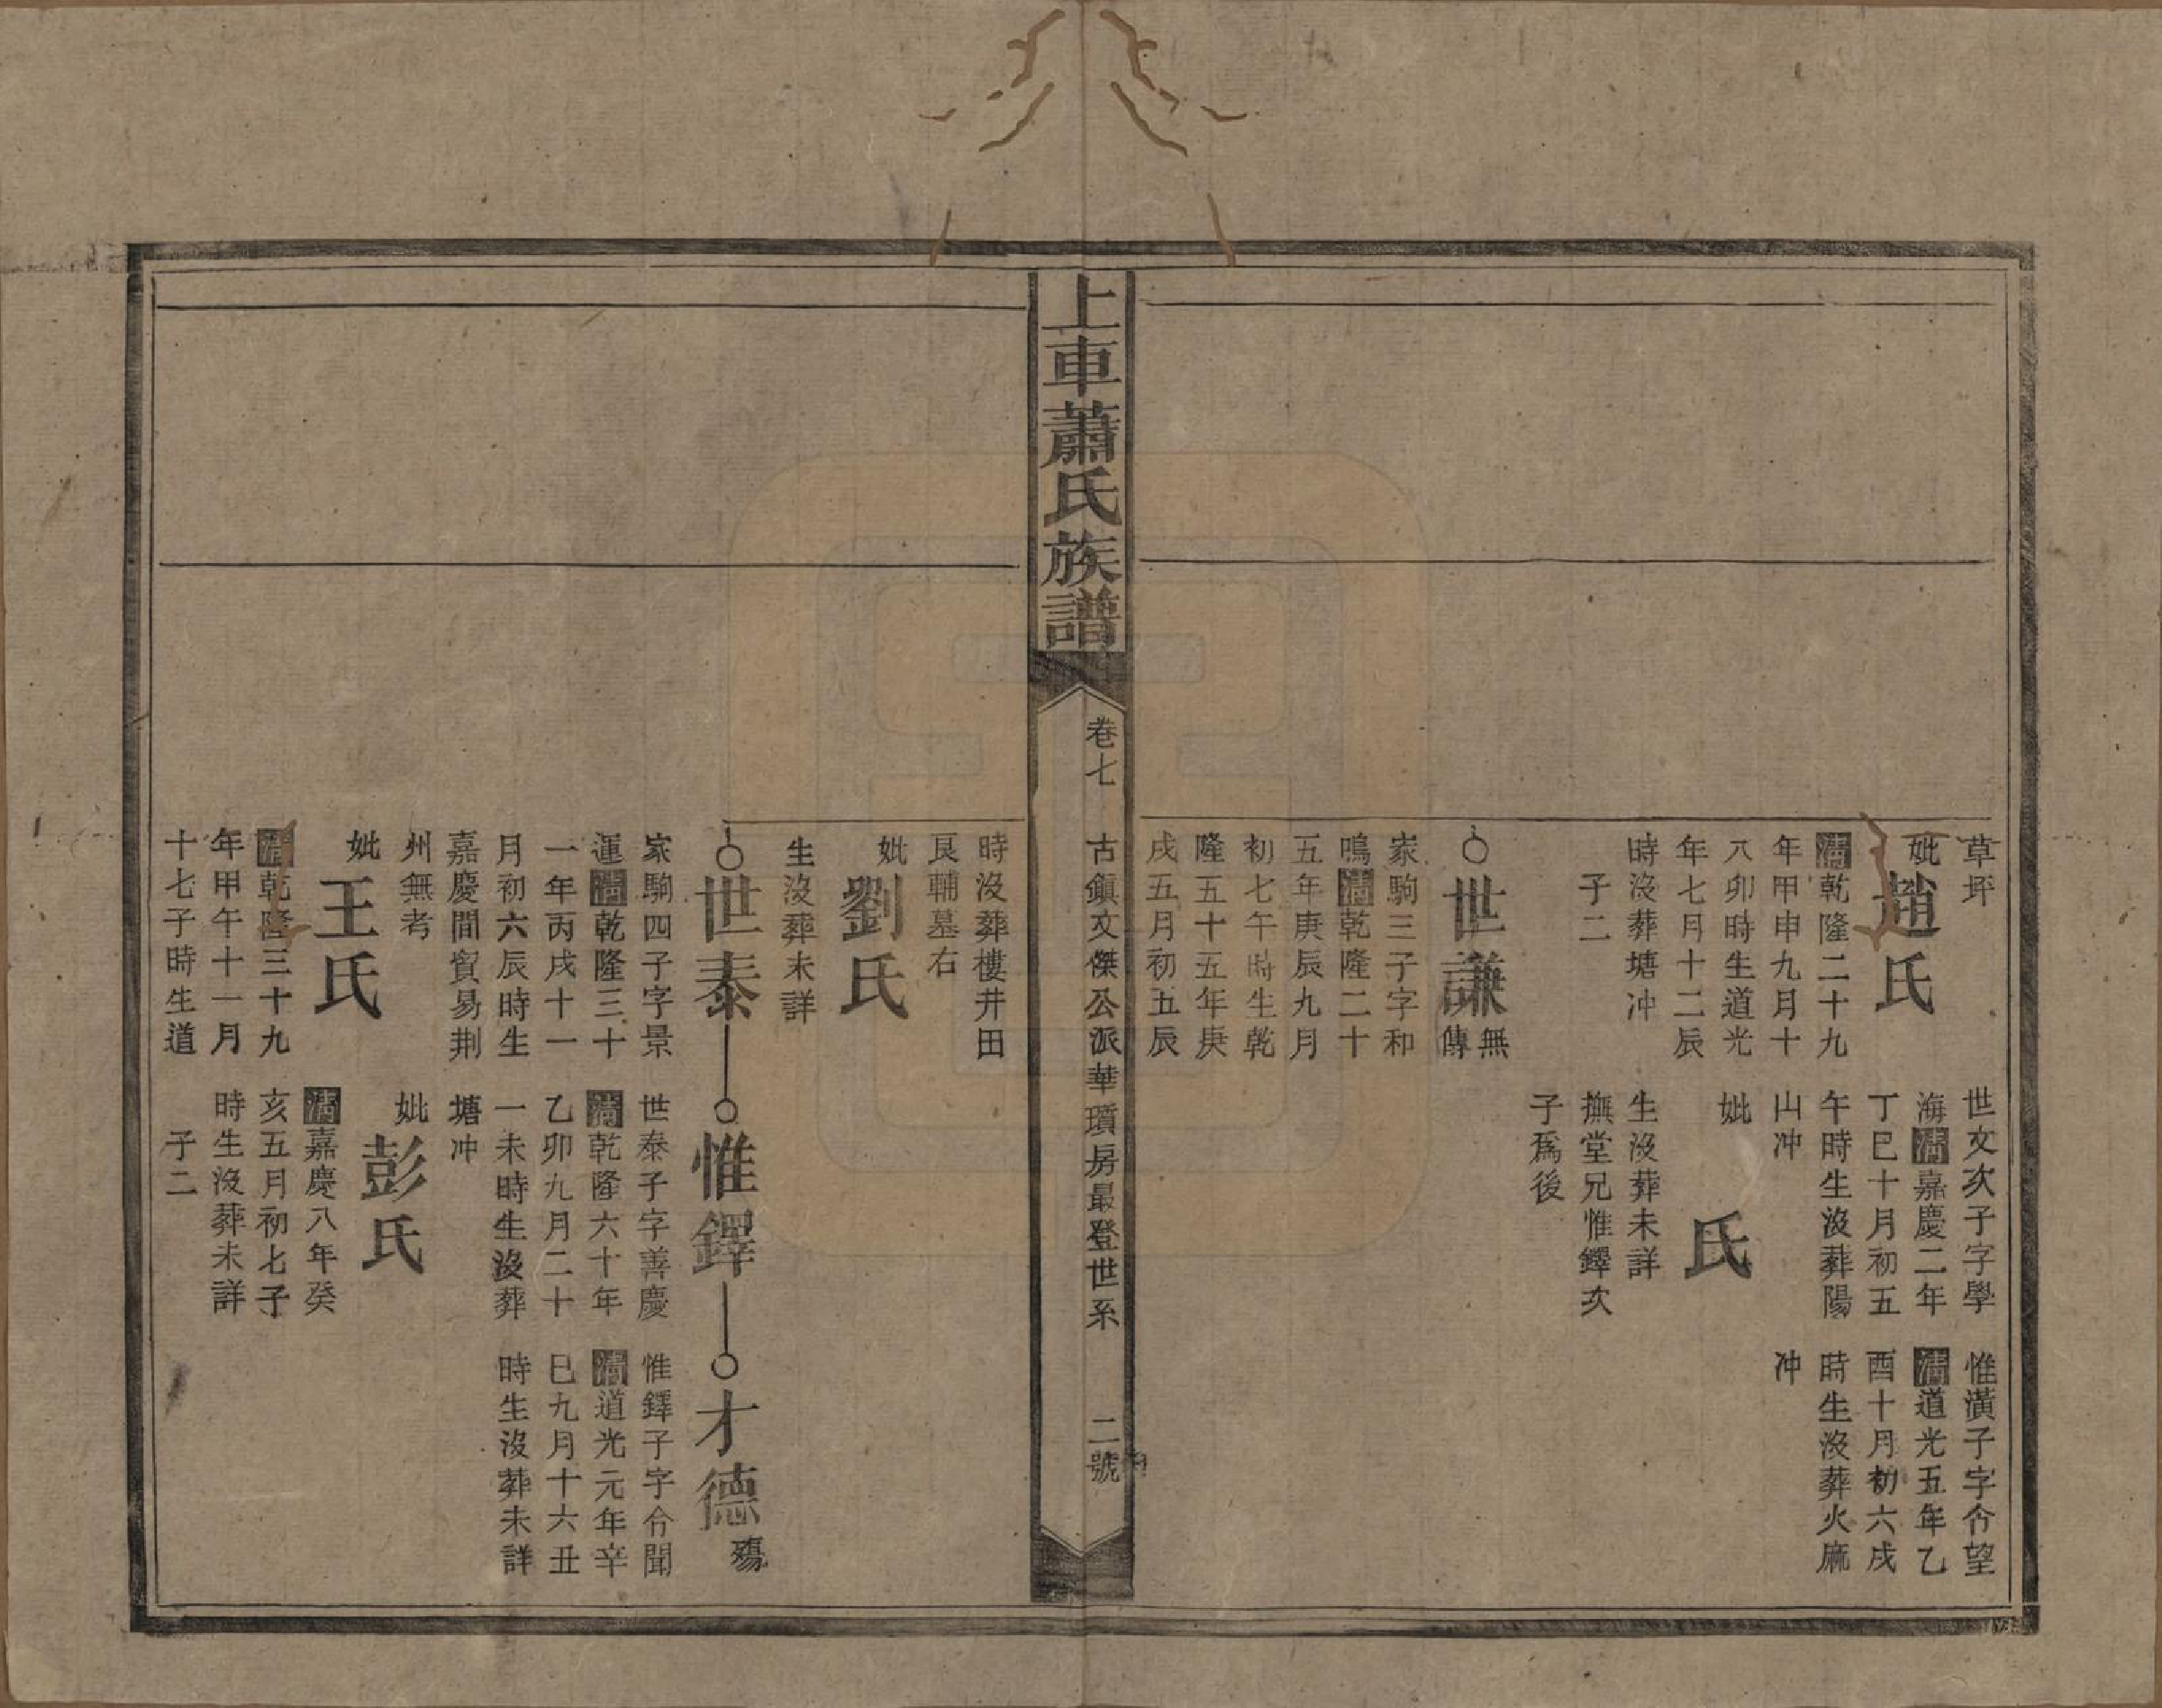 草坪
妣趙氏
清乾隆二十九
年甲申九月十
八卯時生道光
年七月十二辰
時沒葬塘冲
子二
世謙無傳
家駒三子字和
鳴清乾隆二十
五年庚辰九月
初七午時生乾
隆五十五年庚
戌五月初五辰
世文次子字學
海清嘉慶二年
丁巳十月初五
午時生沒葬陽
山冲
妣 氏
生沒葬未詳
撫堂兄惟鐸次
子爲後
惟潢子字令望
清道光五年乙
酉十月初六戌
時生沒葬火麻
冲
上車蕭氏族譜
卷七 古鎮文傑公派華瓆房最登世系 二號
時沒葬樓井田
艮輔墓右
妣劉氏
生沒葬未詳
世泰
家駒四子字景
運清乾隆三十
一年丙戌十一
月初六辰時生
嘉慶間貿易荆
州無考
妣王氏
清乾隆三十九
年甲午十一月
十七子時生道
惟鐸
世泰子字善慶
清乾隆六十年
乙卯九月二十
一未時生沒葬
塘冲
妣彭氏
清嘉慶八年癸
亥五月初七子
時生沒葬未詳
子二
才德殤
惟鐸子字令聞
清道光元年辛
巳九月十六丑
時生沒葬未詳